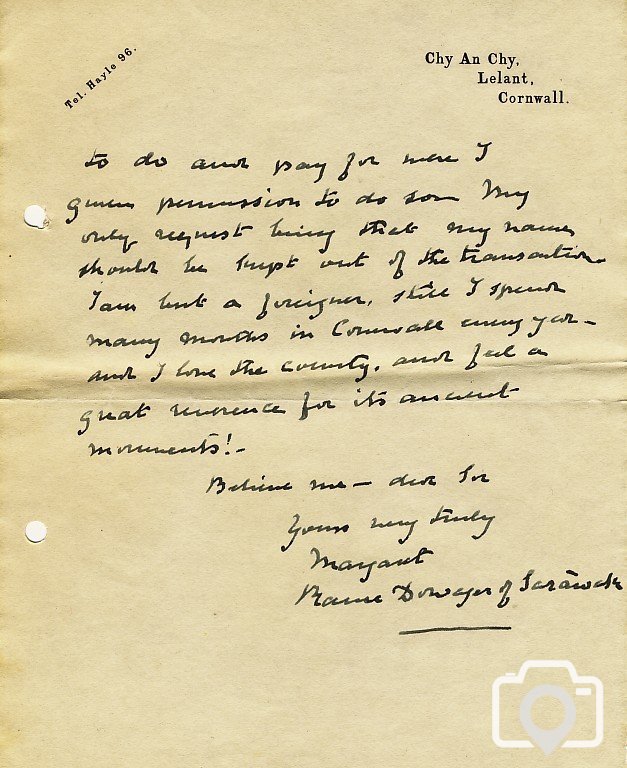 Tel. Hayle 96.
Chy An Chy,
Lelant,
Cornwall.
to do and pay for were I
given permission to do so – My
only request being that my name
should be kept out of the transaction –
I am but a foreigner, still I spend
many months in Cornwall every year –
and I love the county, and feel a
great reverence for its ancient
monuments! –
Believe me – dear Sir
Yours very truly
Margaret
Ranee Dowager of Sarāwak